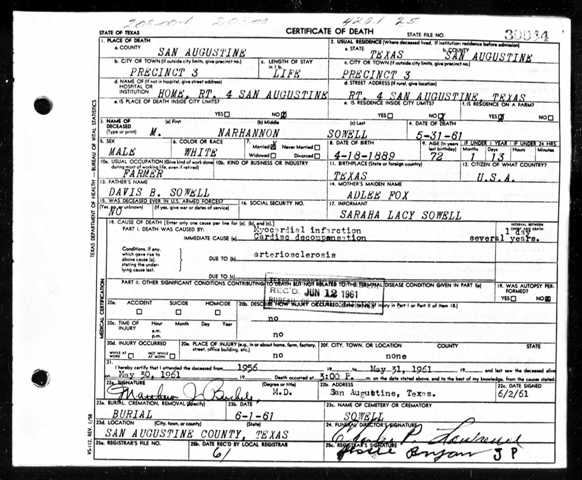 4201 25
STATE OF TEXAS CERTIFICATE OF DEATH STATE FILE NO.
1. PLACE OF DEATH 2. USUAL RESIDENCE (Where deceased lived. If institution: residence before admission)
a. COUNTY a. STATE b. COUNTY
SAN AUGUSTINE TEXAS SAN AUGUSTINE
b. CITY OR TOWN (If outside city limits, give precinct no.) c. LENGTH OF STAY c. CITY OR TOWN (If outside city limits, give precinct no.)
PRECINCT 3 LIFE PRECINCT 3
d. NAME OF (If not in hospital, give street address) HOSPITAL OR INSTITUTION d. STREET ADDRESS (If rural, give location)
HOME, RT. 4 SAN AUGUSTINE RT. 4 SAN AUGUSTINE, TEXAS
e. IS PLACE OF DEATH INSIDE CITY LIMITS? e. IS RESIDENCE INSIDE CITY LIMITS? f. IS RESIDENCE ON A FARM?
YES NO YES NO YES NO
3. NAME OF DECEASED (Type or print) (a) First (b) Middle (c) Last 4. DATE OF DEATH
M. NARHANNON SOWELL 5-31-61
5. SEX 6. COLOR OR RACE 7. Married Never Married Widowed Divorced 8. DATE OF BIRTH 9. AGE (In years last birthday) IF UNDER 1 YEAR IF UNDER 24 HRS.
Months Days Hours Min.
MALE WHITE 4-18-1889 72 1 13
10a. USUAL OCCUPATION (Give kind of work done during most of working life, even if retired) 10b. KIND OF BUSINESS OR INDUSTRY 11. BIRTHPLACE (State or foreign country) 12. CITIZEN OF WHAT COUNTRY?
FARMER TEXAS U.S.A.
13. FATHER'S NAME 14. MOTHER'S MAIDEN NAME
DAVIS B. SOWELL ADLEE FOX
15. WAS DECEASED EVER IN U.S. ARMED FORCES? 16. SOCIAL SECURITY NO. 17. INFORMANT
(Yes, no, or unknown) (If yes, give war or dates of service)
NO SARAHA LACY SOWELL
18. CAUSE OF DEATH (Enter only one cause per line for (a), (b), and (c).) INTERVAL BETWEEN ONSET AND DEATH
PART I. DEATH WAS CAUSED BY: Myocardial infarction 1 day
IMMEDIATE CAUSE (a) Cardiac decompensation several years.
Conditions, if any, which gave rise to above cause (a), stating the underlying cause last.
DUE TO (b) arteriosclerosis
DUE TO (c)
PART II. OTHER SIGNIFICANT CONDITIONS CONTRIBUTING TO DEATH BUT NOT RELATED TO THE TERMINAL DISEASE CONDITION GIVEN IN PART I(a) 19. WAS AUTOPSY PERFORMED?
YES NO
REC'D JUN 12 1961
20a. ACCIDENT SUICIDE HOMICIDE 20b. DESCRIBE HOW INJURY OCCURRED. (Enter nature of injury in Part I or Part II of item 18.)
no
20c. TIME OF INJURY Hour Month Day Year
a.m.
p.m.
no
20d. INJURY OCCURRED 20e. PLACE OF INJURY (e.g., in or about home, farm, factory, street, office building, etc.) 20f. CITY, TOWN, OR LOCATION COUNTY STATE
WHILE AT WORK NOT WHILE AT WORK no none
21. I hereby certify that I attended the deceased from 1956 19 to May 31, 1961 19 and last saw the deceased alive
on May 30, 1961 19 Death occurred at 3:00 P. m. on the date stated above, and to the best of my knowledge, from the causes stated.
22a. SIGNATURE (Degree or title) 22b. ADDRESS 22c. DATE SIGNED
M.D. San Augustine, Texas. 6/2/61
23a. BURIAL, CREMATION, REMOVAL (Specify) 23b. DATE 23c. NAME OF CEMETERY OR CREMATORY
BURIAL 6-1-61 SOWELL
23d. LOCATION (City, town, or county) (State) 24. FUNERAL DIRECTOR'S SIGNATURE
SAN AUGUSTINE COUNTY, TEXAS Charles P. Lawrence
25a. REGISTRAR'S FILE NO. 25b. DATE REC'D BY LOCAL REGISTRAR 25c. REGISTRAR'S SIGNATURE
61 Bryan J P
TEXAS DEPARTMENT OF HEALTH — BUREAU OF VITAL STATISTICS
MEDICAL CERTIFICATION
VS-112 REV. 1/58